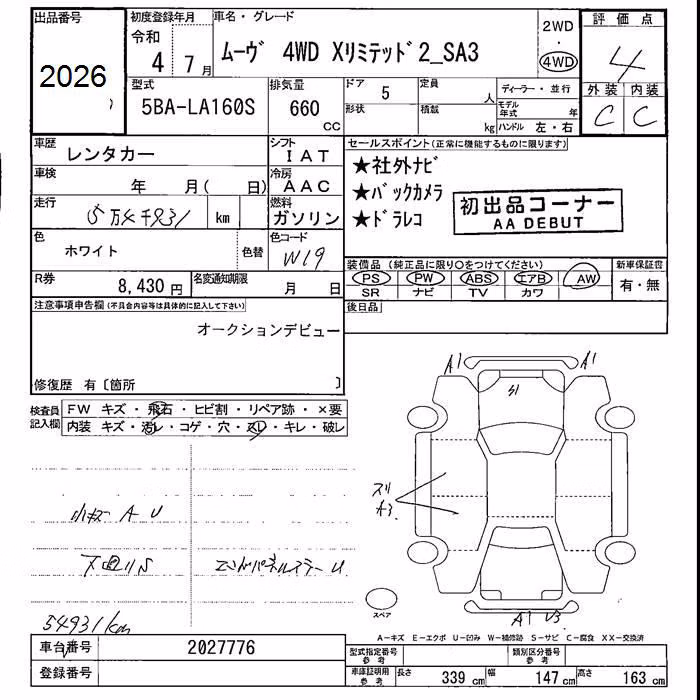 出品番号
2026
初度登録年月
令和
4 7月
車名・グレード
ムーヴ 4WD Xリミテッド2_SA3
2WD
・
4WD
評価点
4
外装 内装
C C
型式
5BA-LA160S
排気量
660
CC
ドア 5
形状
定員
人
積載
kg
ディーラー・並行
モデル年式 年
ハンドル 左・右
車歴 レンタカー
シフト
IAT
車検
年 月( 日)
冷房
AAC
走行
5万4千931 km
燃料
ガソリン
色
ホワイト
色替
色コード
W19
R券
8,430円
名変通知期限
月 日
セールスポイント(正常に機能するものに限ります)
★社外ナビ
★バックカメラ
★ドラレコ
初出品コーナー
AA DEBUT
装備品(純正品に限り○をつけてください)
PS PW ABS エアB AW
SR ナビ TV カワ
新車保証書
有・無
後日品
注意事項申告欄(不具合内容等は具体的に記入して下さい)
オークションデビュー
修復歴 有〔箇所 〕
検査員記入欄
FW キズ・飛石・ヒビ割・リペア跡・×要
内装 キズ・汚レ・コゲ・穴・スレ・キレ・破レ
A1 A1
S1
スリ
A3
小キズ A U
下廻りS
エンジンパネルステーU
54931km
スペア
A1 U3
A-キズ E-エクボ U-凹み W-補修跡 S-サビ C-腐食 XX-交換済
車台番号 2027776
登録番号
型式指定番号
参考
類別区分番号
参考
車庫証明用
参考
長さ 339 cm 幅 147 cm 高さ 163 cm